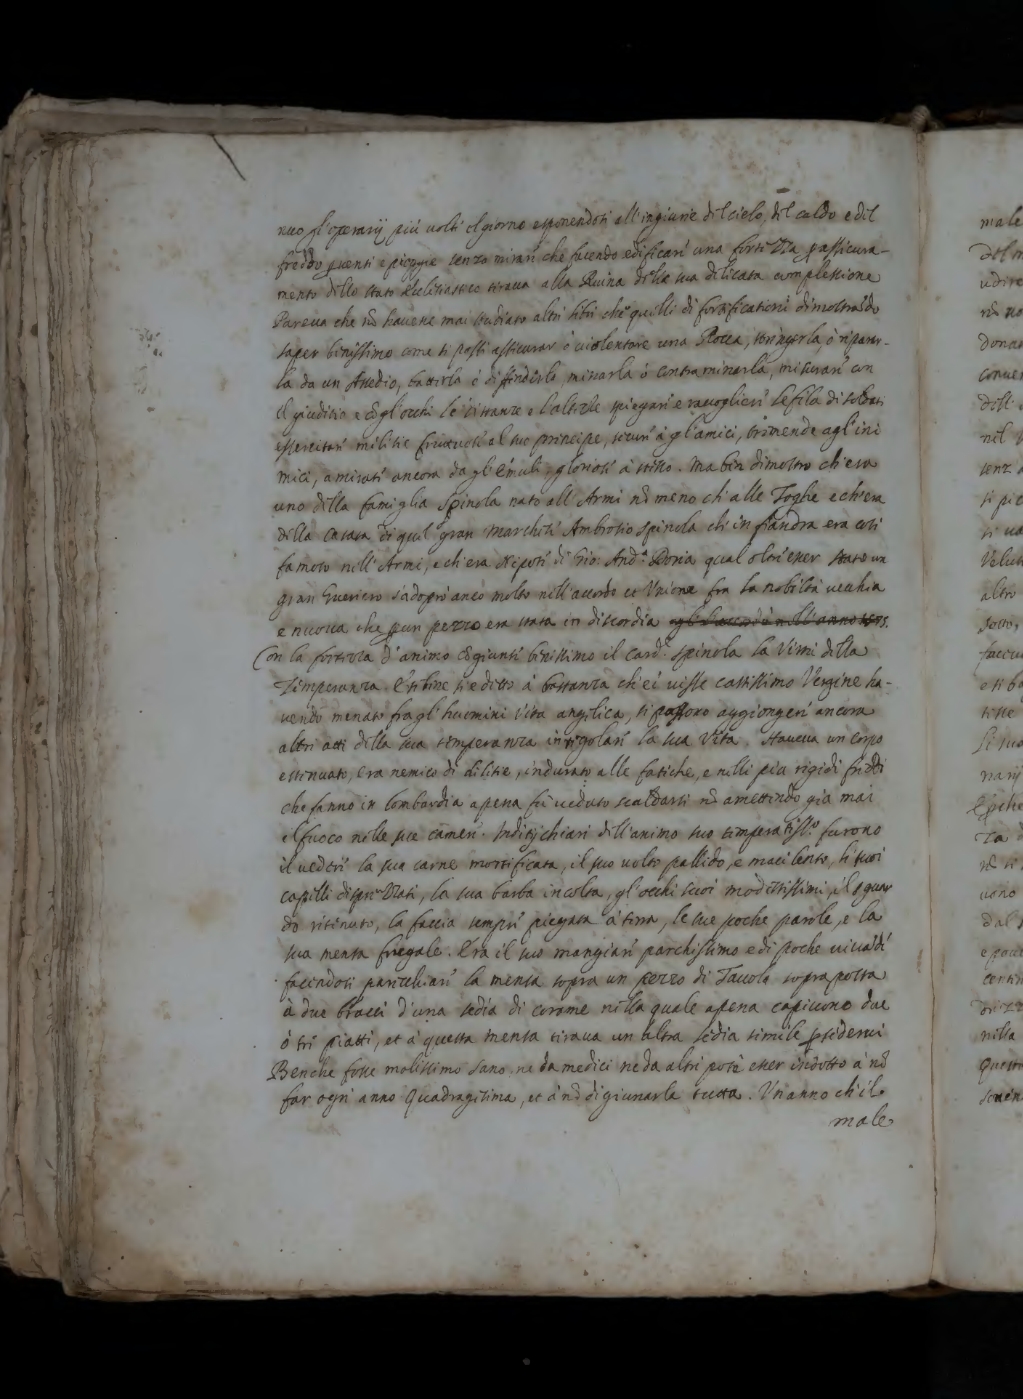 nuo gl'operarij più uolti el giorno esponendosi all'ingiurie del cielo, del caldo e del
freddo uenti e pioggie senza mirari che facendo edificari una fortezza p assicura-
mento dello stato Eclesiastico tiraua alla Ruina della sua delicata complessione
Pareua che nō hauesse mai studiato altri libri che quelli di fortificationi dimostrādo
saper benissimo come si possi assicurar ò uiolentare una Rocca, stringerla, ò riparar-
la da un Assedio, batterla ò diffenderla, minarla ò contraminarla, misurari con
il giuditio e cō gl'occhi le distanze e l'altezze spiegari e raccoglieri le fila di soldati
essercitari militie fruttuosi al suo principe, sicuri à gl'amici, tremende agl'ini
mici, amirati ancora da gl'Emuli, gloriosi à stesso. Ma ben dimostro ch'era
uno della famiglia Spinola nato all'Armi nō meno ch'alle Toghe e ch'era
della Casata di quel gran Marchesi Ambrosio Spinola ch'in fiandra era così
famoso nell'Armi, e ch'era Nipoti di Gio: And.ª Doria qual oltr'esser stato un
gran Gueriero s'adoprò anco molto nell'acordo et Unione fra la nobiltà uechia
e nuoua che p un pezzo era stata in discordia
Con la fortezza d'animo cōgiunti benissimo il Card.le Spinola la Virtù della
Temperanza. E se bene si è ditto à bastanza ch'ei uisse castissimo Vergine ha-
uendo menato fra gl'huomini uita angelica, si possono aggiongeri ancora
altri atti della sua temperanza in regolari la sua Vita. Haueua un corpo
estenuato, era nemico di delitie, indurato alle fatiche, e nelli più rigidi freddi
che fanno in lombardia apena fù ueduto scaldarsi nō amettendo già mai
il fuoco nelle sue cameri. Indicij chiari dell'animo suo temperatiss.o furono
il uederi la sua carne mortificata, il suo uolto pallido, e macilento, li suoi
capelli disprezzati, la sua barba incolta, gl'occhi suoi modestissimi, il sguar
do ritenuto, la faccia sempri piegata à terra, le sue poche parole, e la
sua mensa frugale. Era il suo mangiari parchissimo e di poche uiuādi
facendosi parechiari la mensa sopra un pezzo di Tauola sopraposta
à due bracci d'una sedia di corame nella quale apena capiuono due
ò tri piatti, et à questa mensa tiraua un altra sedia simile p sederui
Benche fosse molissimo sano ne da medici ne da altri potè esser indotto à nō
far ogni anno Quadragesima, et à nō digiunarla tutta. Un anno ch'il
male